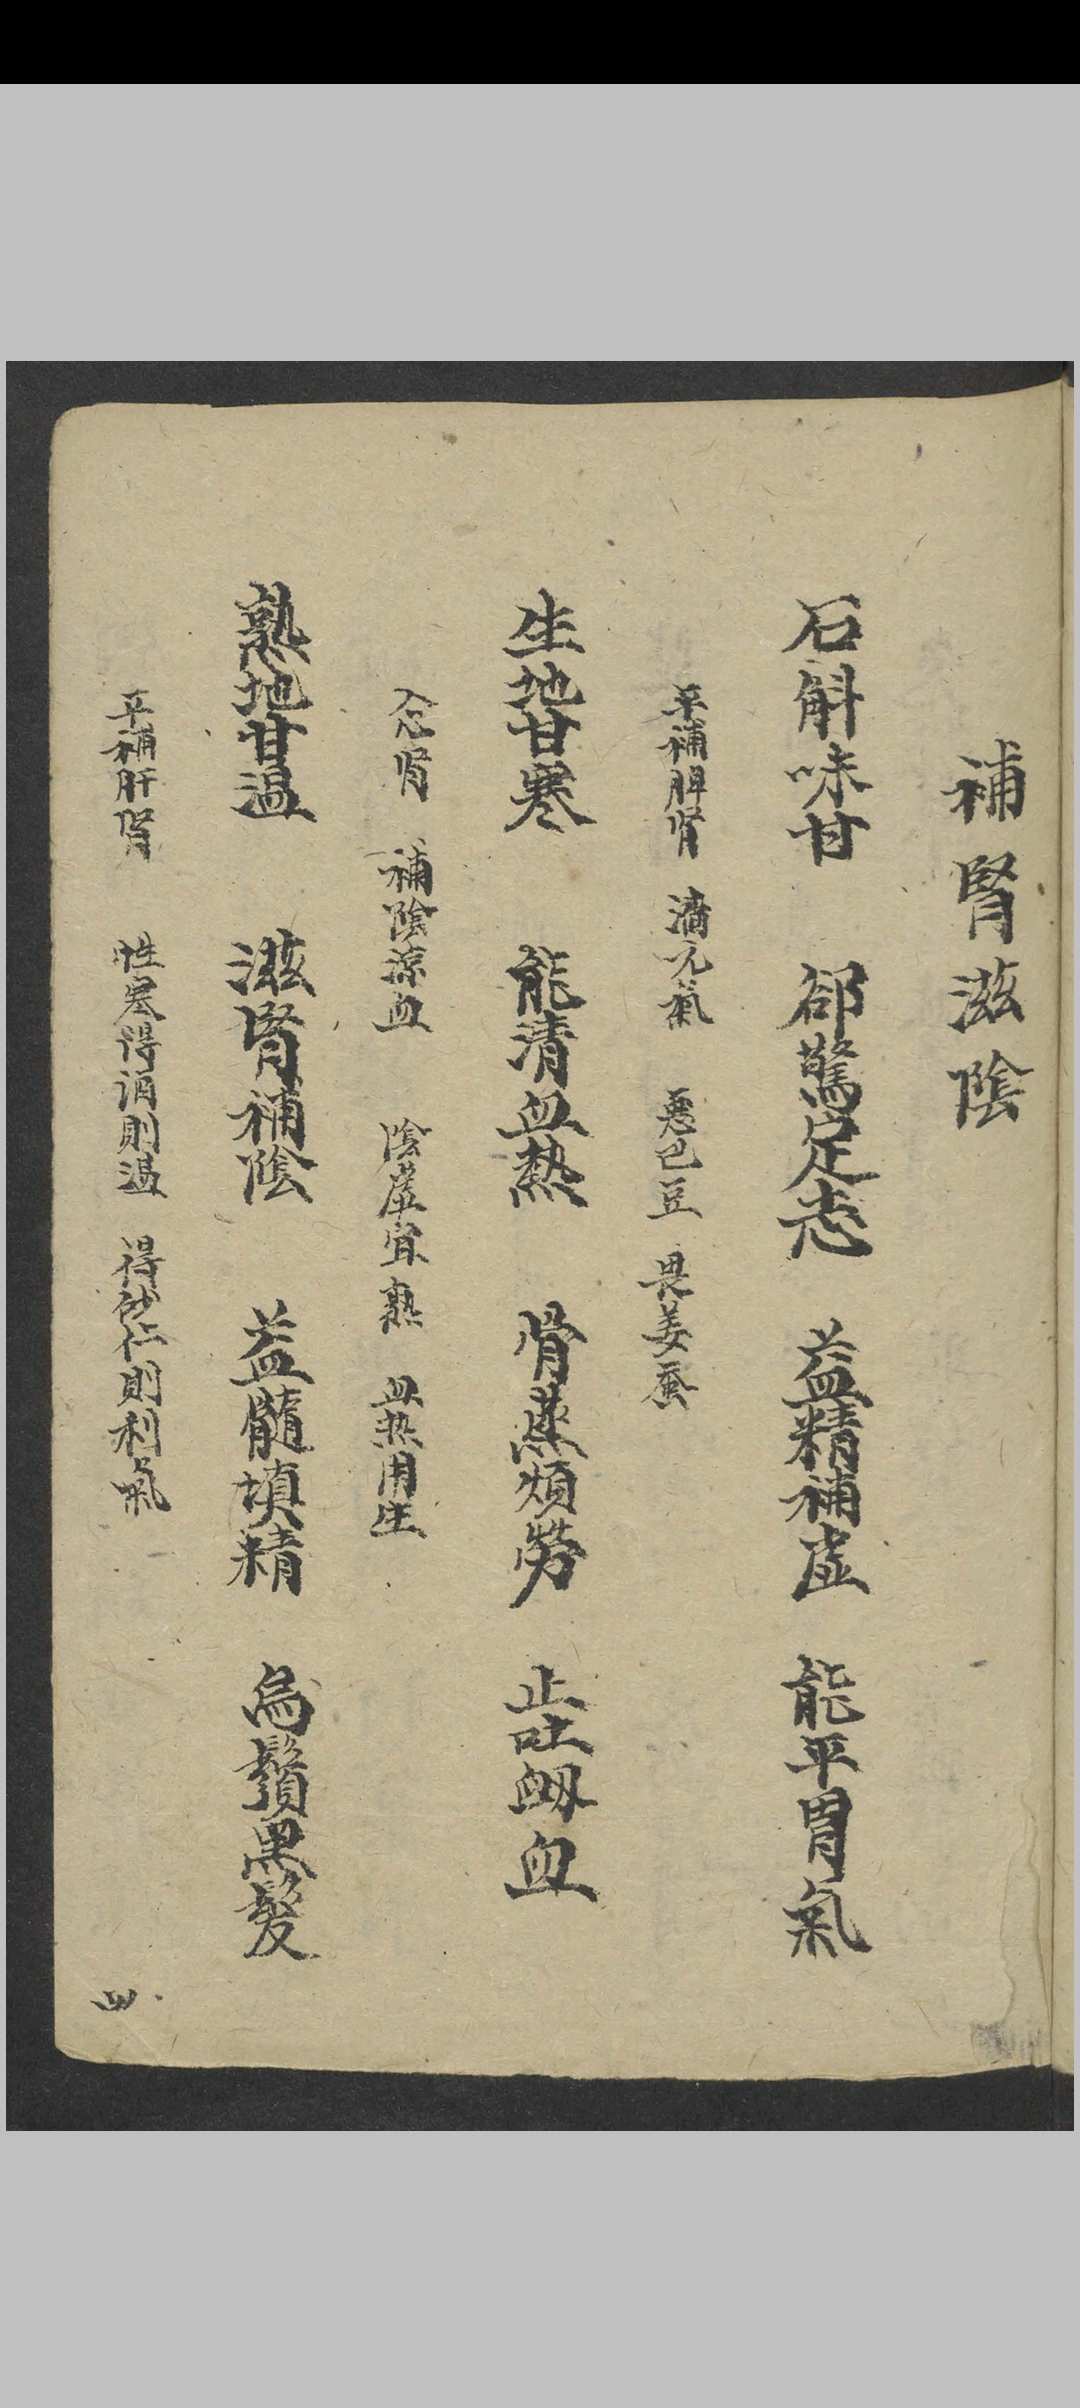 補腎滋陰
石斛味甘 郤驚定志 益精補虛 能平胃氣
平補脾肾 清元氣 惡巴豆 畏姜蚕
生地甘寒 能清血熱 骨蒸煩勞 止吐衂血
入心肾 補陰凉血 陰虛宜熟 血热用生
熟地甘温 滋腎補陰 益髓填精 烏鬚黑髮
平補肝肾 性寒得酒則温 得砂仁則利氣
四